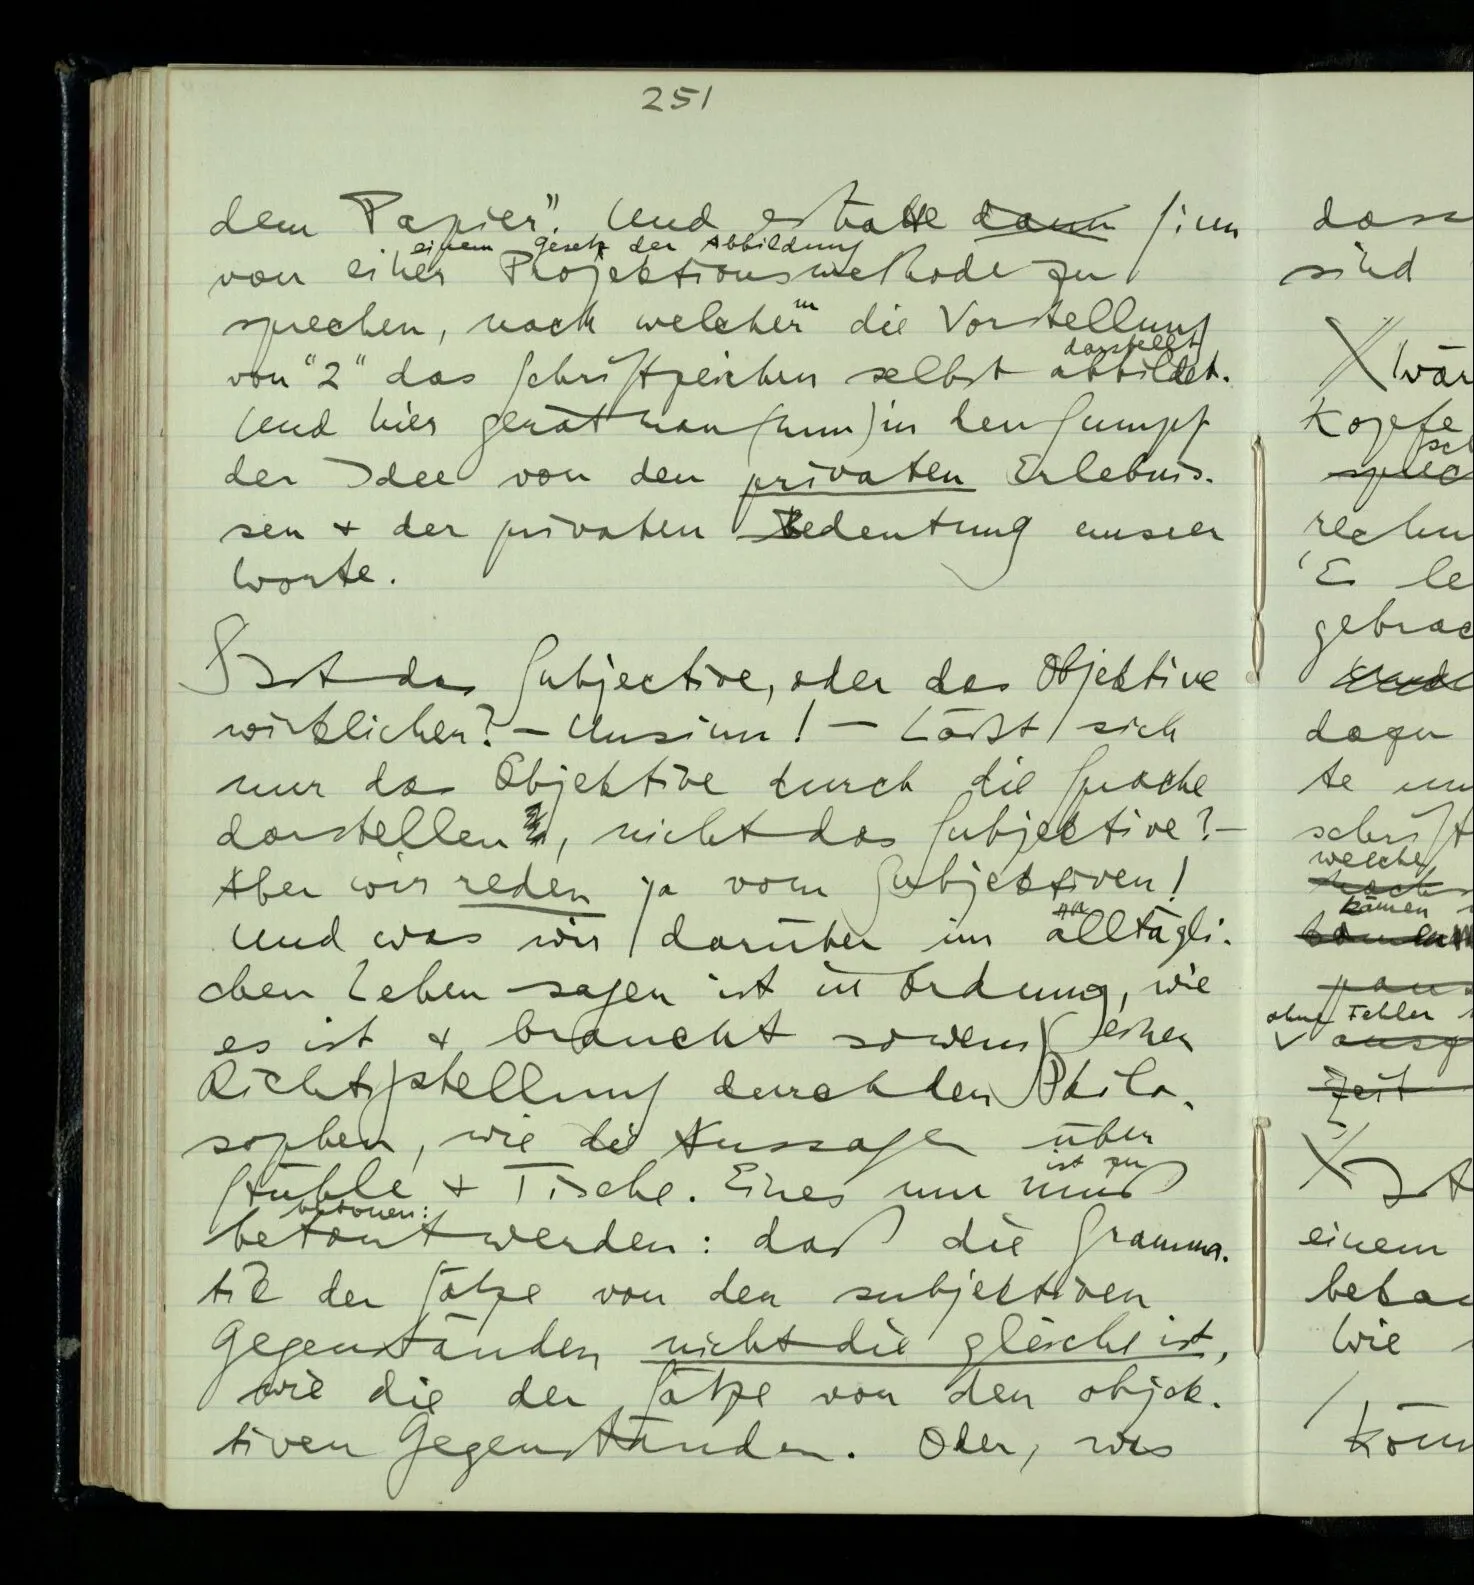 251
dem Papier". Und es hatte dann Sinn
einem Gesetz der Abbildung
von einer Projektionsmethode zu
sprechen, nach welcher m die Vorstellung
darstellt
von "2" das Schriftzeichen selbst abbildet.
Und hier gerät man (nun) in den Sumpf
der Idee von den privaten Erlebnis-
sen + der privaten Bedeutung unserer
Worte.
Ist das Subjective, oder das Objektive
wirklicher? – Unsinn! – Läßt sich
nur das Objektive durch die Sprache
darstellen, nicht das Subjektive? –
Aber wir reden ja vom Subjektiven!
Und was wir darüber im alltägli-
chen Leben sagen ist in Ordnung, wie
es ist + braucht sowenig einer
Richtigstellung durch den Philo-
sophen, wie die Aussagen über
ist zu
Stühle + Tische. Eines nur muß
betonen:
betont werden: daß die Gramma-
tik der Sätze von den subjektiven
Gegenständen nicht die gleiche ist,
wie die der Sätze von den objek-
tiven Gegenständen. Oder, was
dass
sind
X Wär
Kopfe
rechn
'Es le
gebrac
dazu
te un
schrift
welche
kämen
ohne Fehler
Zeit
X Ist
einem
Wie
/ Könn